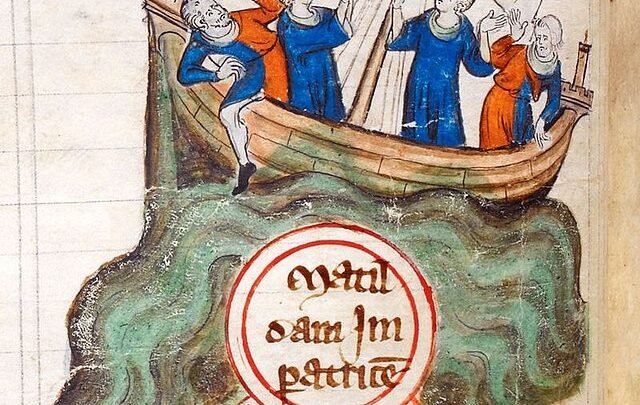 Matil
dam Im
patricē